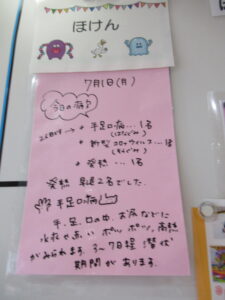 ほけん
7月1日(月)
今日の病気
→ ・手足口病…1名
・新型コロナウィルス…1名
・発熱 …1名
発熱 早退2名でした。
手足口病
手、足、口の中、お尻などに
水疱や赤いポツポツ、高熱
がみられます。3~7日程 潜伏
期間があります。